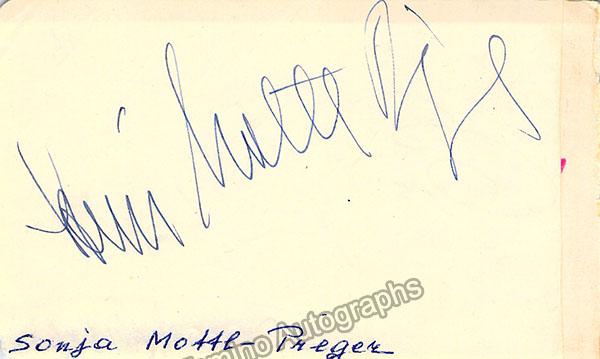 Mottl
Tamino Autographs
Sonja Mottl-Preger